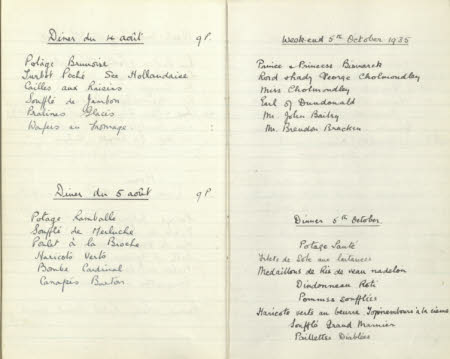 Diner du 4 août 9 P.
Potage Brunoise
Turbot Poché Sce Hollandaise
Cailles aux Raisins
Soufflé de Jambon
Pralines Glacés
Wafers au fromage
Diner du 5 août 9 P.
Potage Lamballe
Soufflé de Merluche
Poulet à la Broche
Haricots Verts
Bombe Cardinal
Canapés Burton
Week-end 5th October 1935
Prince & Princess Bismarck
Lord & Lady George Cholmondley
Miss Cholmondley
Earl of Dundonald
Mr. John Bailey
Mr. Brendan Bracken
Dinner 5th October
Potage Santé
Filets de Sole aux laitances
Medaillons de Ris de veau
Dindonneau Roti
Pommes soufflées
Haricots verts au beurre Topinambours à la crème
Soufflé Grand Marnier
Paillettes Diablées